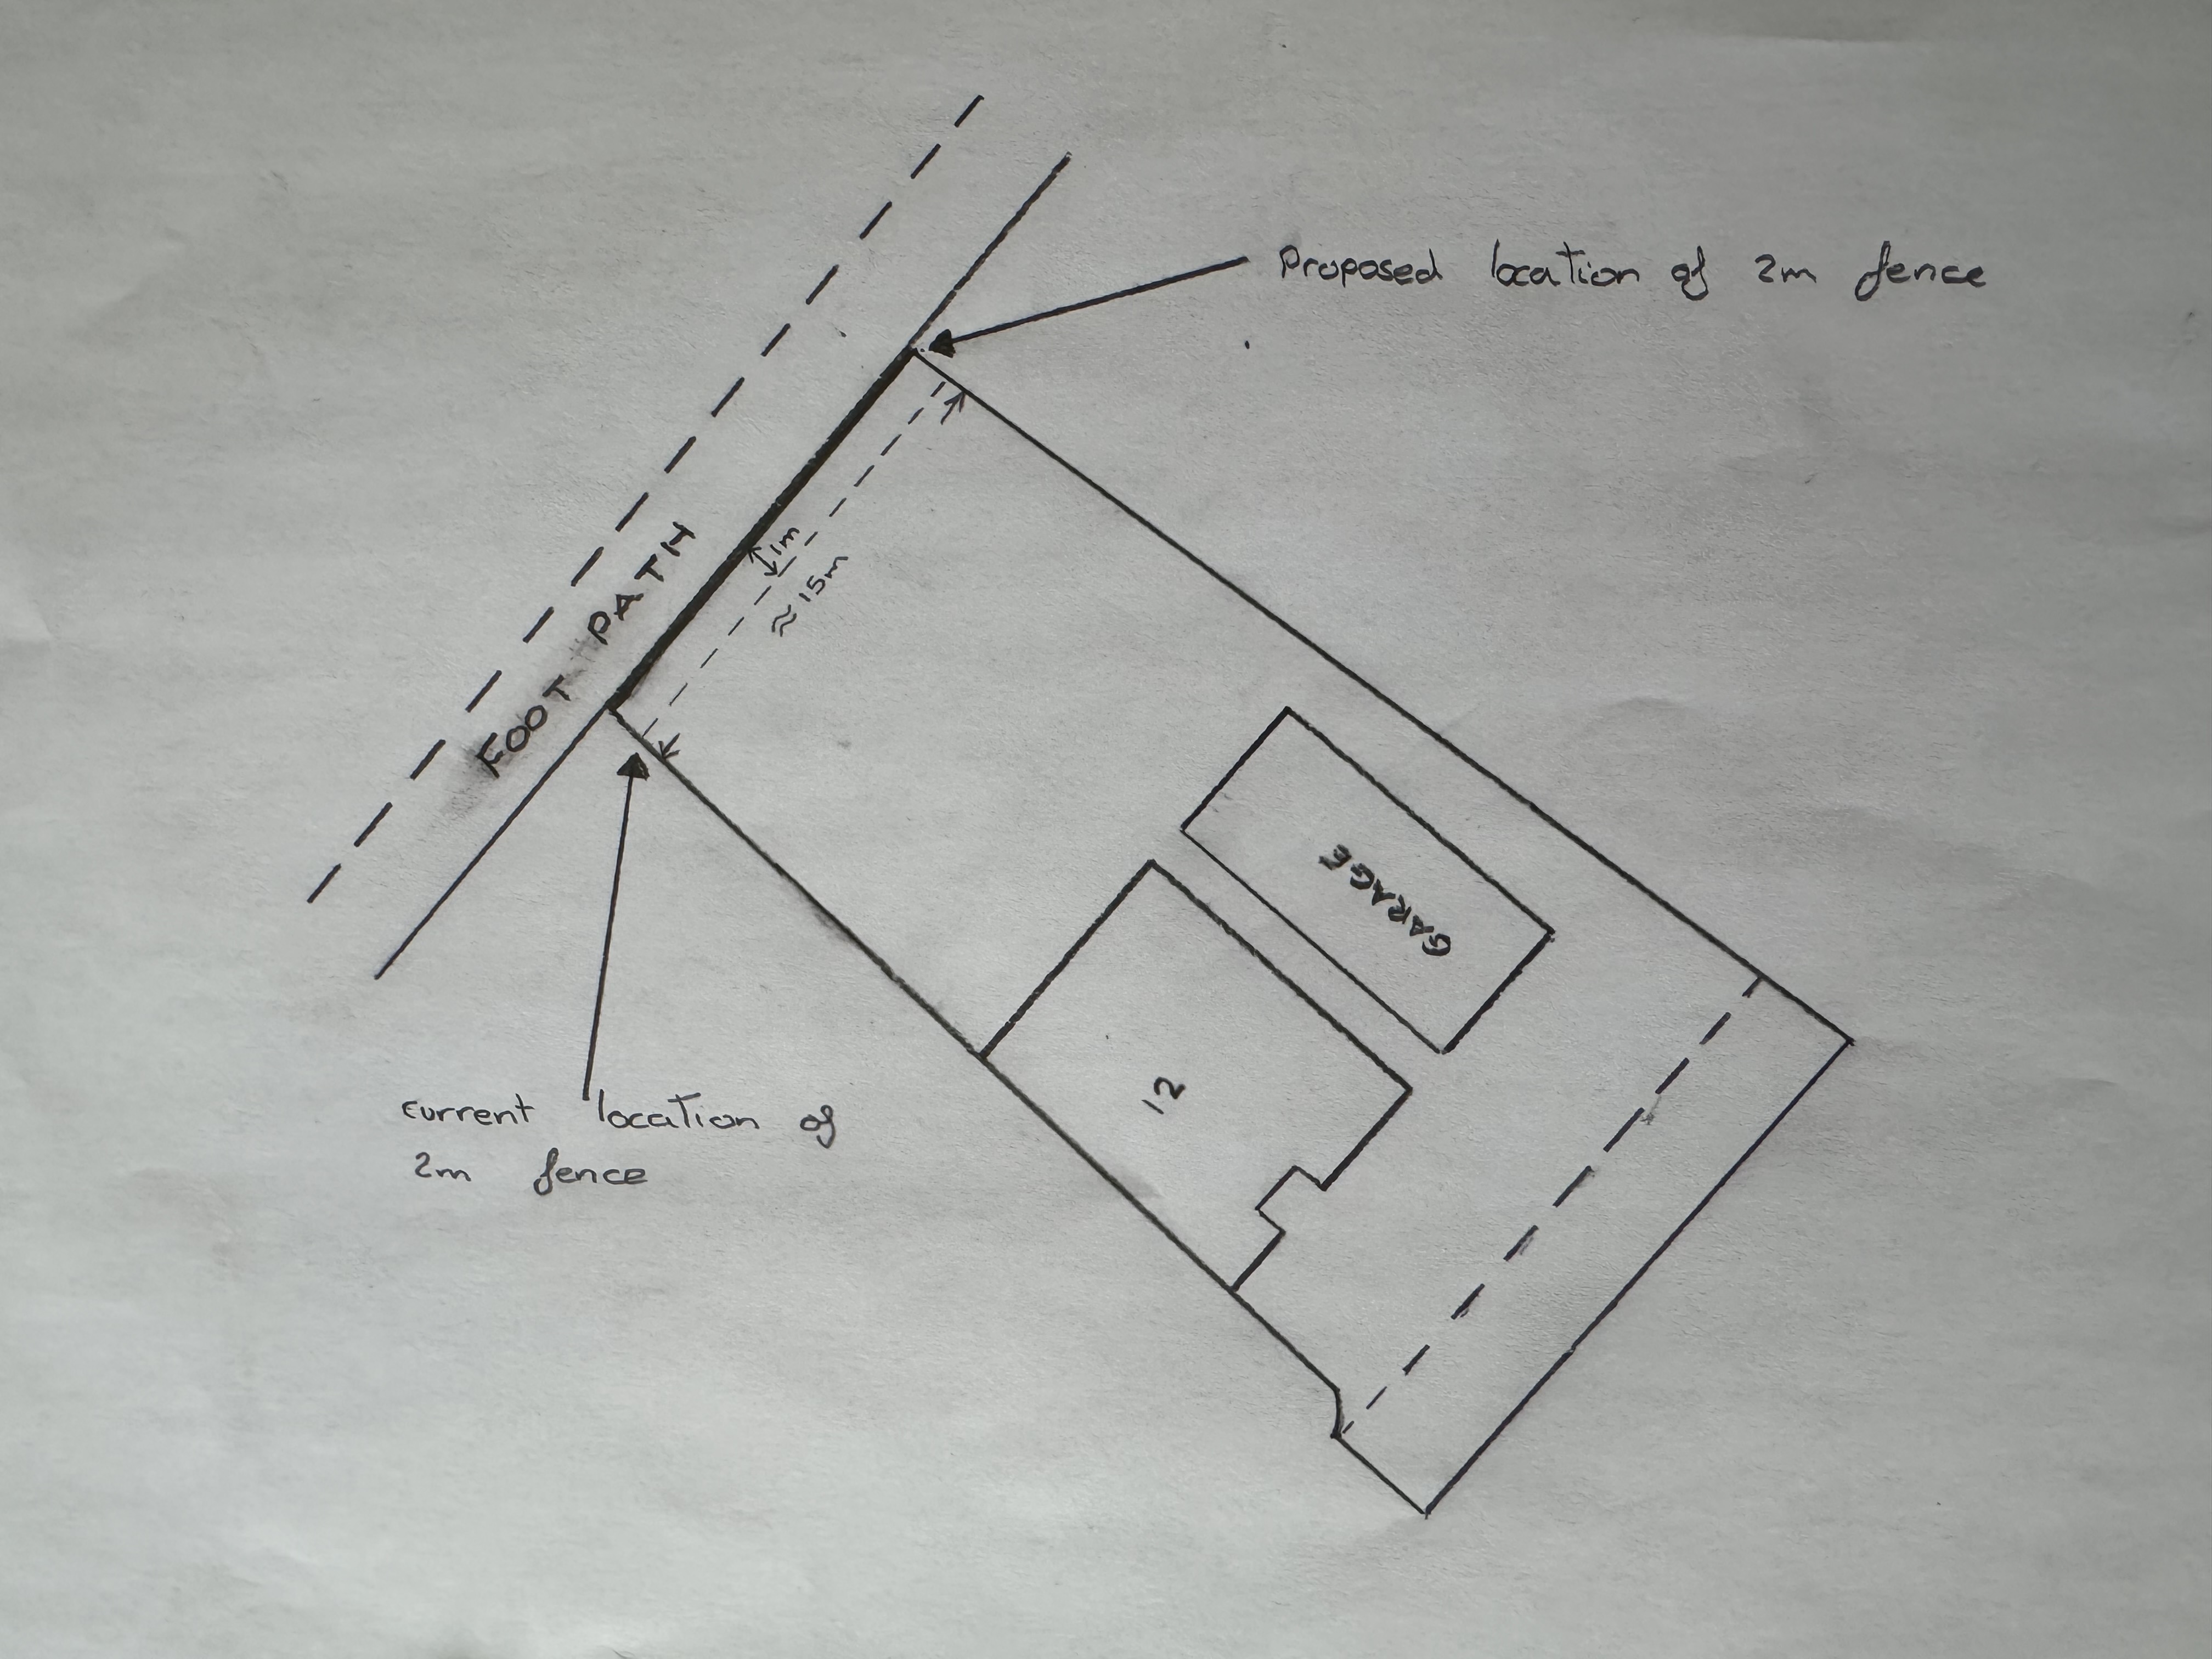 Proposed location of 2m fence
FOOT PATH
1m
≈ 15m
GARAGE
12
current location of
2m fence